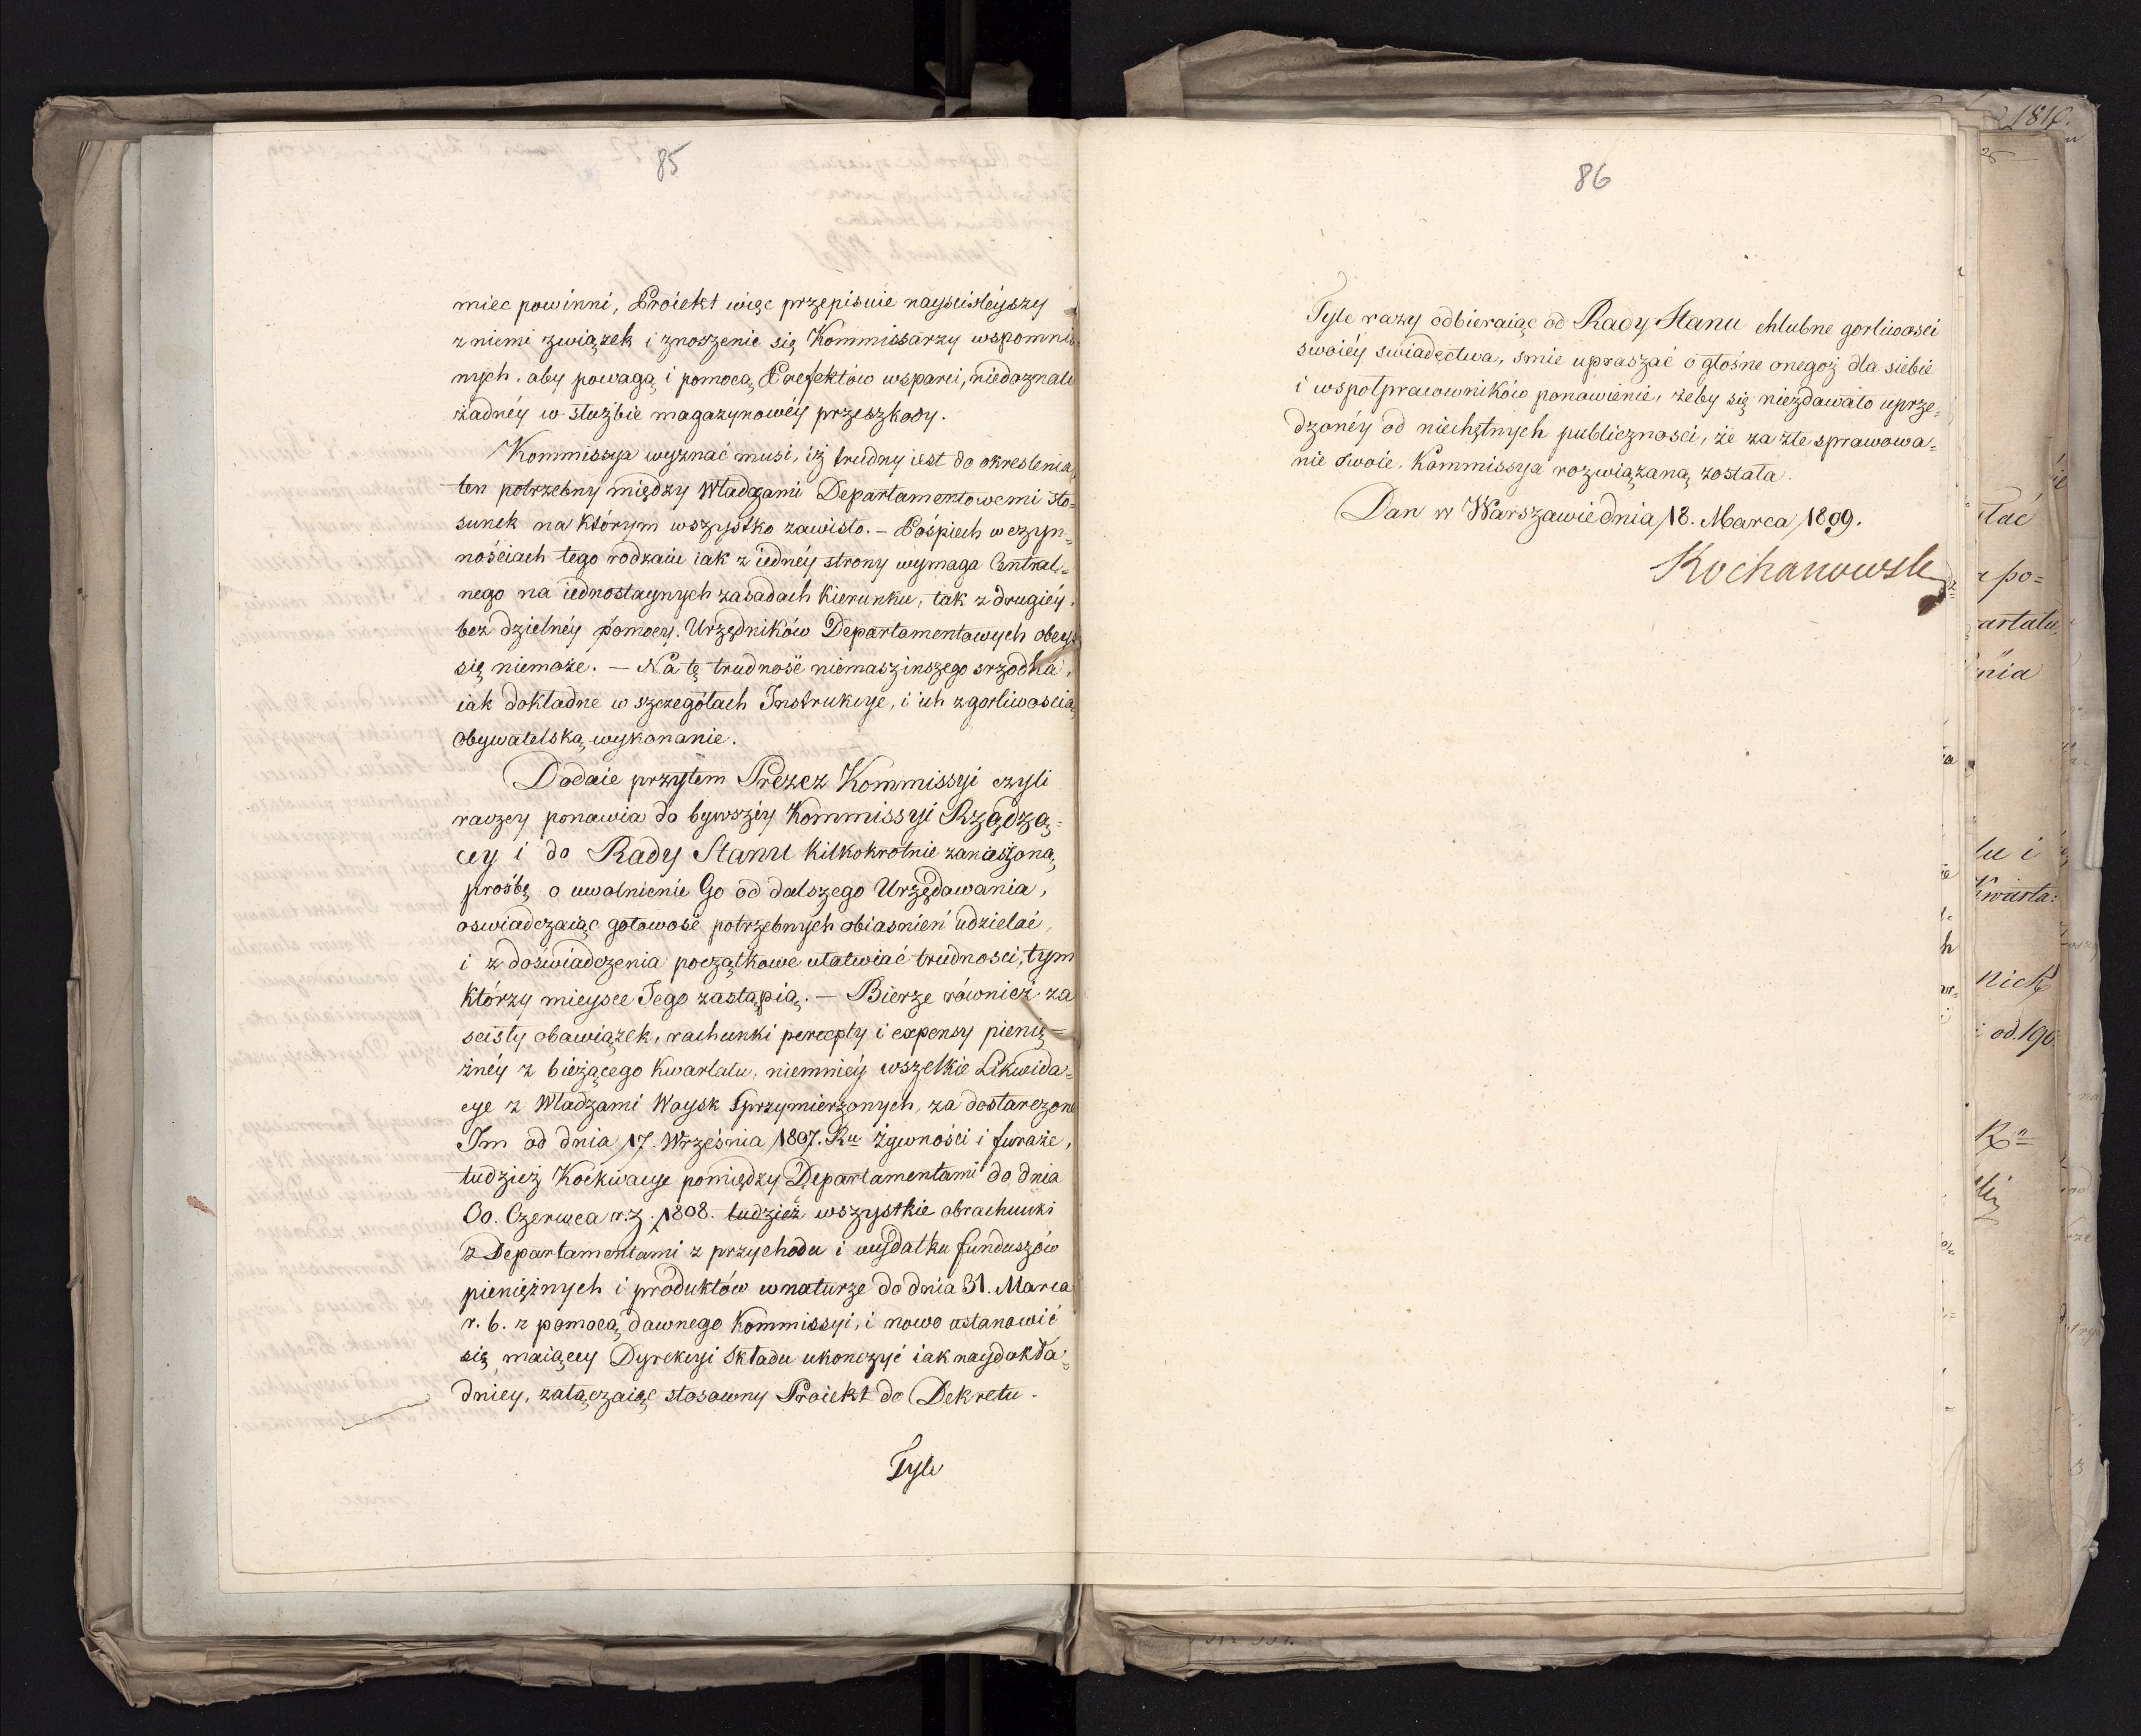 85
miec powinni, Proiekt więc przepisuie nayscisleyszy
z niemi związek i znoszenie się Kommissarzy wspomnio
nych. aby powagą i pomocą Prefektów wsparci, niedoznali
żadnéy w służbie magazynowéy przeszkody.
Kommissya wyznać musi, iż trudny iest do okreslenia,
ten potrzebny między Władzami Departamentowemi sto=
sunek na którym wszystko zawisło. – Pośpiech w czyn=
nościach tego rodzaiu iak z iednéy strony wymaga Central=
nego na iednostaynych zasadach kierunku, tak z drugiéy.
bez dzielnéy pomocy. Urzędników Departamentowych obeyść
się niemoże. – Na tę trudność niemasz inszego srzodka,
iak dokładne w szczegółach Instrukcye, i ich z gorliwoscią
obywatelską wykonanie.
Dodaie przytem Prezez Kommissyi czyli
raczey ponawia do bywszéy Kommissyi Rządzą=
cey i do Rady Stanu kilkokrotnie zanieszoną
prośbę o uwolnienie Go od dalszego Urzędawania,
oswiadczaiąc gotowość potrzebnych obiasnień udzielać,
i z doświadczenia początkowe ułatwiać trudnosci, tym
którzy mieysce Jego zastąpią. – Bierze również za
scisły obowiązek, rachunki percepty i expensy pienię=
żnéy z bieżącego Kwartału, niemniéy wszelkie Likwida=
cye z Władzami Woysk Sprzymierzonych, za dostarczone
Im od dnia 17. Września 1807. Ru żywności i furaże,
tudzież Koekwacye pomiędzy Departamentami do dnia
30. Czerwca r. z. 1808. tudzież wszystkie obrachunki
z Departamentami z przychodu i wydatku funduszów
pieniężnych i produktów w naturze do dnia 31. Marca
r. b. z pomocą dawnego Kommissyi, i nowo ustanowić
się maiącey Dyrekcyi Składu ukonczyć iak naydokła=
dniey, załączaiąc stosowny Proiekt do Dekretu.
Tyle
86
Tyle razy odbieraiąc od Rady Stanu chlubne gorliwosci
swoiéy swiadectwa, smie upraszać o głośne onegoż dla siebie
i wspołpracowników ponowienie, żeby się niezdawało uprze=
dzonéy od niechętnych publicznosci, że za złe sprawowa=
nie swoie, Kommissya rozwiązaną została.
Dan w Warszawie dnia 18. Marca 1809.
Kochanowski